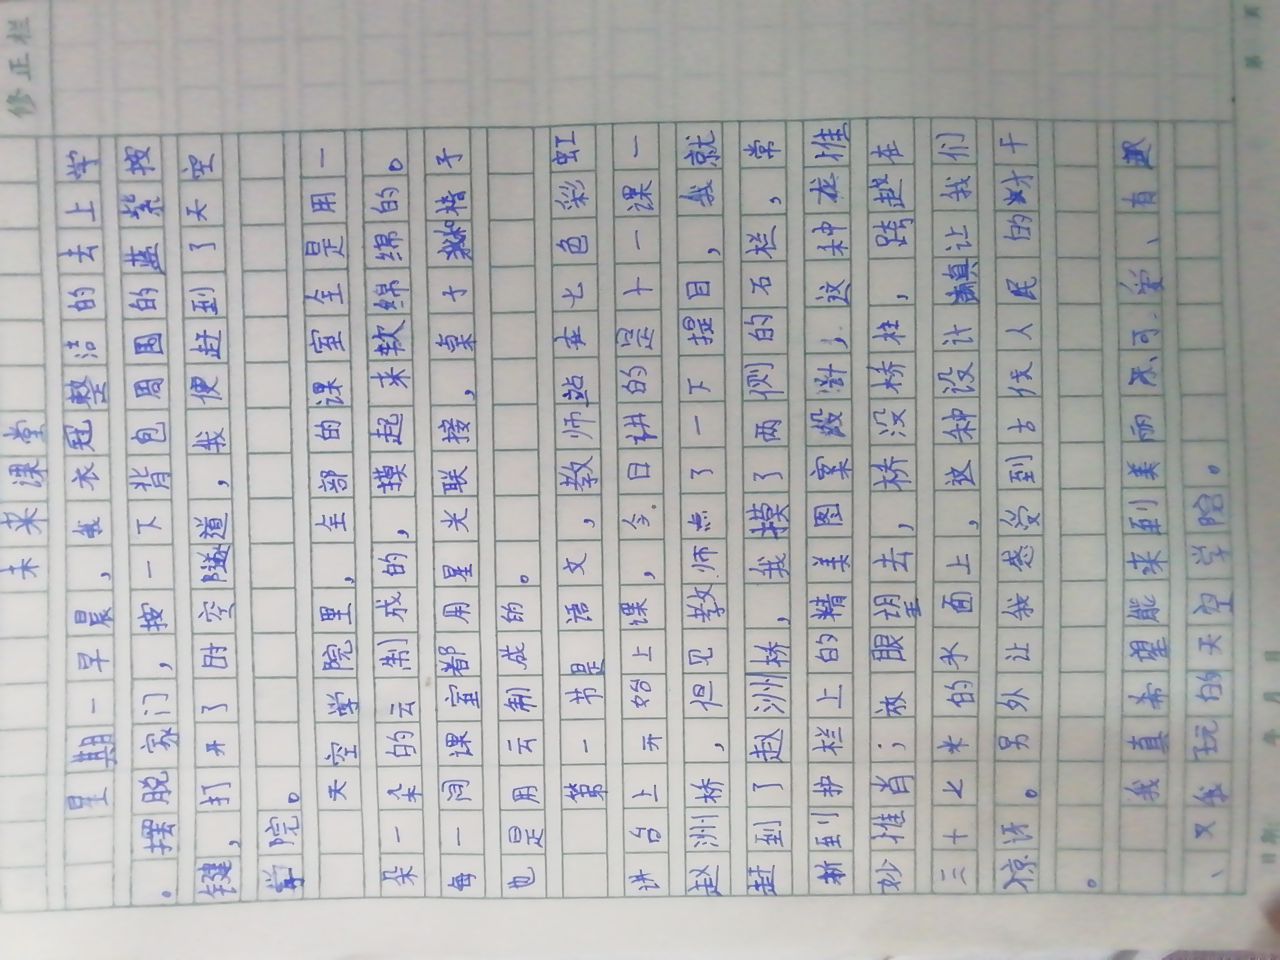 修正栏
未来课堂
星期一早晨，我衣冠整洁的去上学
。摆脱家门，按一下背包周围的蓝紫按
键，打开了时空隧道，我便赶到了天空
学院。
天空学院里，全部的课室全是用一
朵一朵的云制成的，摸起来软绵绵的。
每一间课室都用星光联接，桌子和椅子
也是用云制成的。
第一节是语文，教师站在七色彩虹
讲台上开始上课，今日讲的是十一课一
赵洲桥，但见教师点了一下提目，我就
赶到了赵洲桥，我摸了两侧的石栏，常
新到护栏上的精美图案設計，这种龙惟
妙惟肖；放眼望去，桥没桥柱，跨越在
三十七米的水面上，这种设计真让我们
惊讶。另外让我感受到古伐人民的才干
。
我真希望能来到美丽、可爱、有趣
、又好玩的天空学院。
第 页
日期 年 月 日